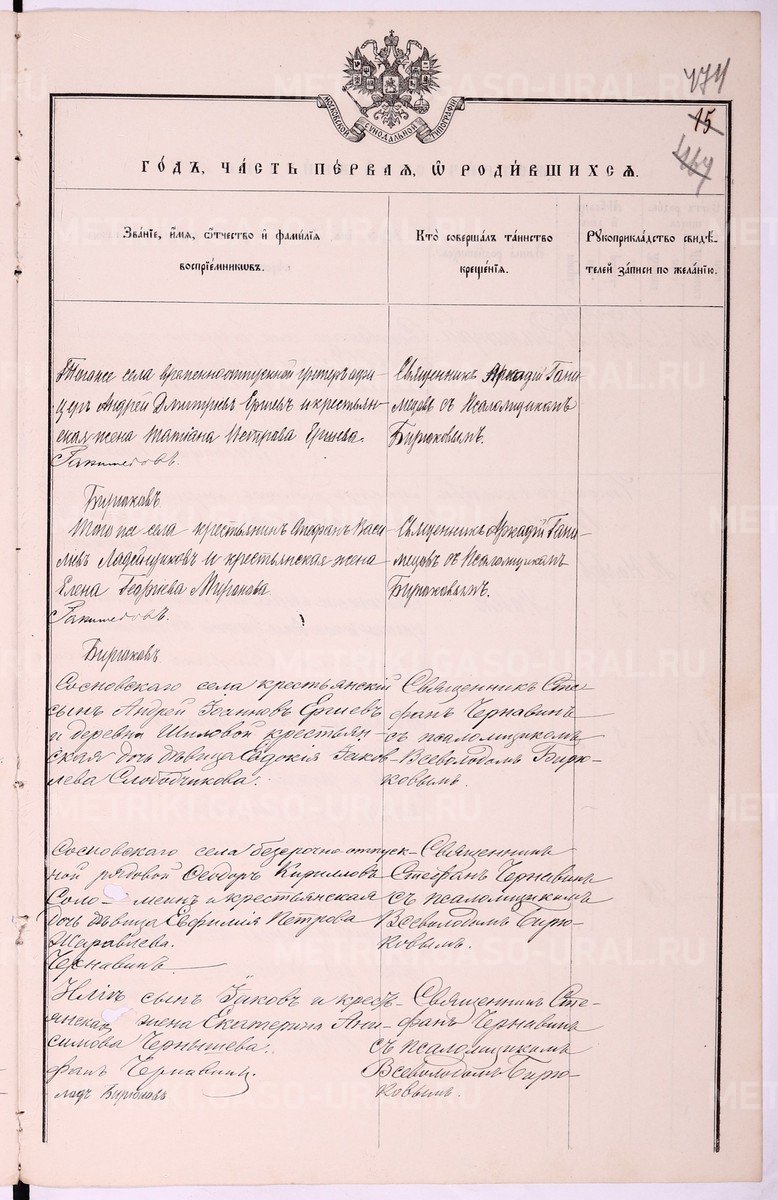 174
15
167
МОСКОВСКОЙ СѴНОДАЛЬНОЙ ТИПОГРАФІИ
ГОДЪ, ЧАСТЬ ПЕРВАЯ, Ѡ РОДИВШИХСЯ.
Званіе, имя, отчество и фамилія
воспріемниковъ.
Кто совершалъ таинство
крещенія.
Рукоприкладство свидѣ-
телей записи по желанію.
села временноотпускной унтеръ офи-
церъ Андрей Дмитріевъ Ершевъ и крестьян-
ская жена Татіана Петрова Ершева.
Священникъ Аркадій Гани-
медовъ съ Псаломщикомъ
Бирюковымъ.
Ганимедовъ.
Бирюковъ
Того же села крестьянинъ Стефанъ Васи-
льевъ Ладейщиковъ и крестьянская жена
Елена Георгіева Миронова
Священникъ Аркадій Гани-
медовъ съ Псаломщикомъ
Бирюковымъ.
Ганимедовъ.
Бирюковъ
Сосновскаго села крестьянскій
сынъ Андрей Іоанновъ Ершевъ
и деревни Шиловой крестьян-
ская дочь дѣвица Евдокія Іаков-
лева Слободчикова.
Священникъ Сте-
фанъ Чернавинъ
съ псаломщикомъ
Всеволодомъ Бирю-
ковымъ.
Сосновскаго села безсрочно-отпуск-
ной рядовой Ѳеодоръ Кирилловъ
Соло- меинъ и крестьянская
дочь дѣвица Евфимія Петрова
Журавлева.
Чернавинъ
Священникъ
Стефанъ Чернавинъ
съ псаломщикомъ
Всеволодомъ Бирю-
ковымъ.
сынъ Іаковъ и кресть-
янская жена Екатерина Ани-
симова Чернышева.
фанъ Чернавинъ.
ладъ Бирюковъ
Священникъ Сте-
фанъ Чернавинъ
съ псаломщикомъ
Всеволодомъ Бирю-
ковымъ.
METRIKI.GASO-URAL.RU